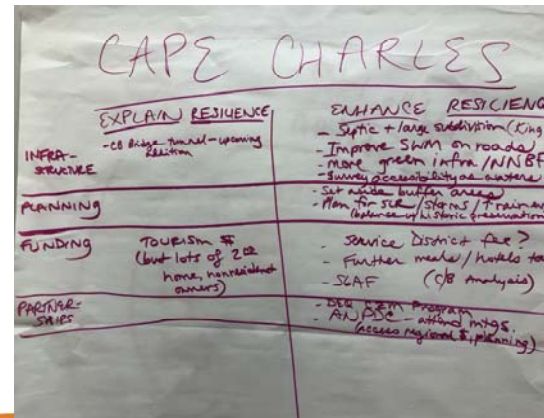 CAPE CHARLES
EXPLAIN RESILIENCE
ENHANCE RESILIENC
INFRA-
STRUCTURE
- CB Bridge tunnel - upcoming
- Septic + large subdivision (King
- Improve SWM on roads
- more green infra / NNBF
- Survey accessibility as waters
PLANNING
- Set aside buffer areas
- Plan for SLR / storms / train
(balance w/ historic preservation
FUNDING
TOURISM $
(but lots of 2nd
home, nonresident
owners)
- Service District fee?
- Further meals / hotels ta
- SLAF (C/B Analysis)
PARTNER-
SHIPS
- DEQ CZM Program
- ANPDC - attend mtgs.
(access regional $, planning)